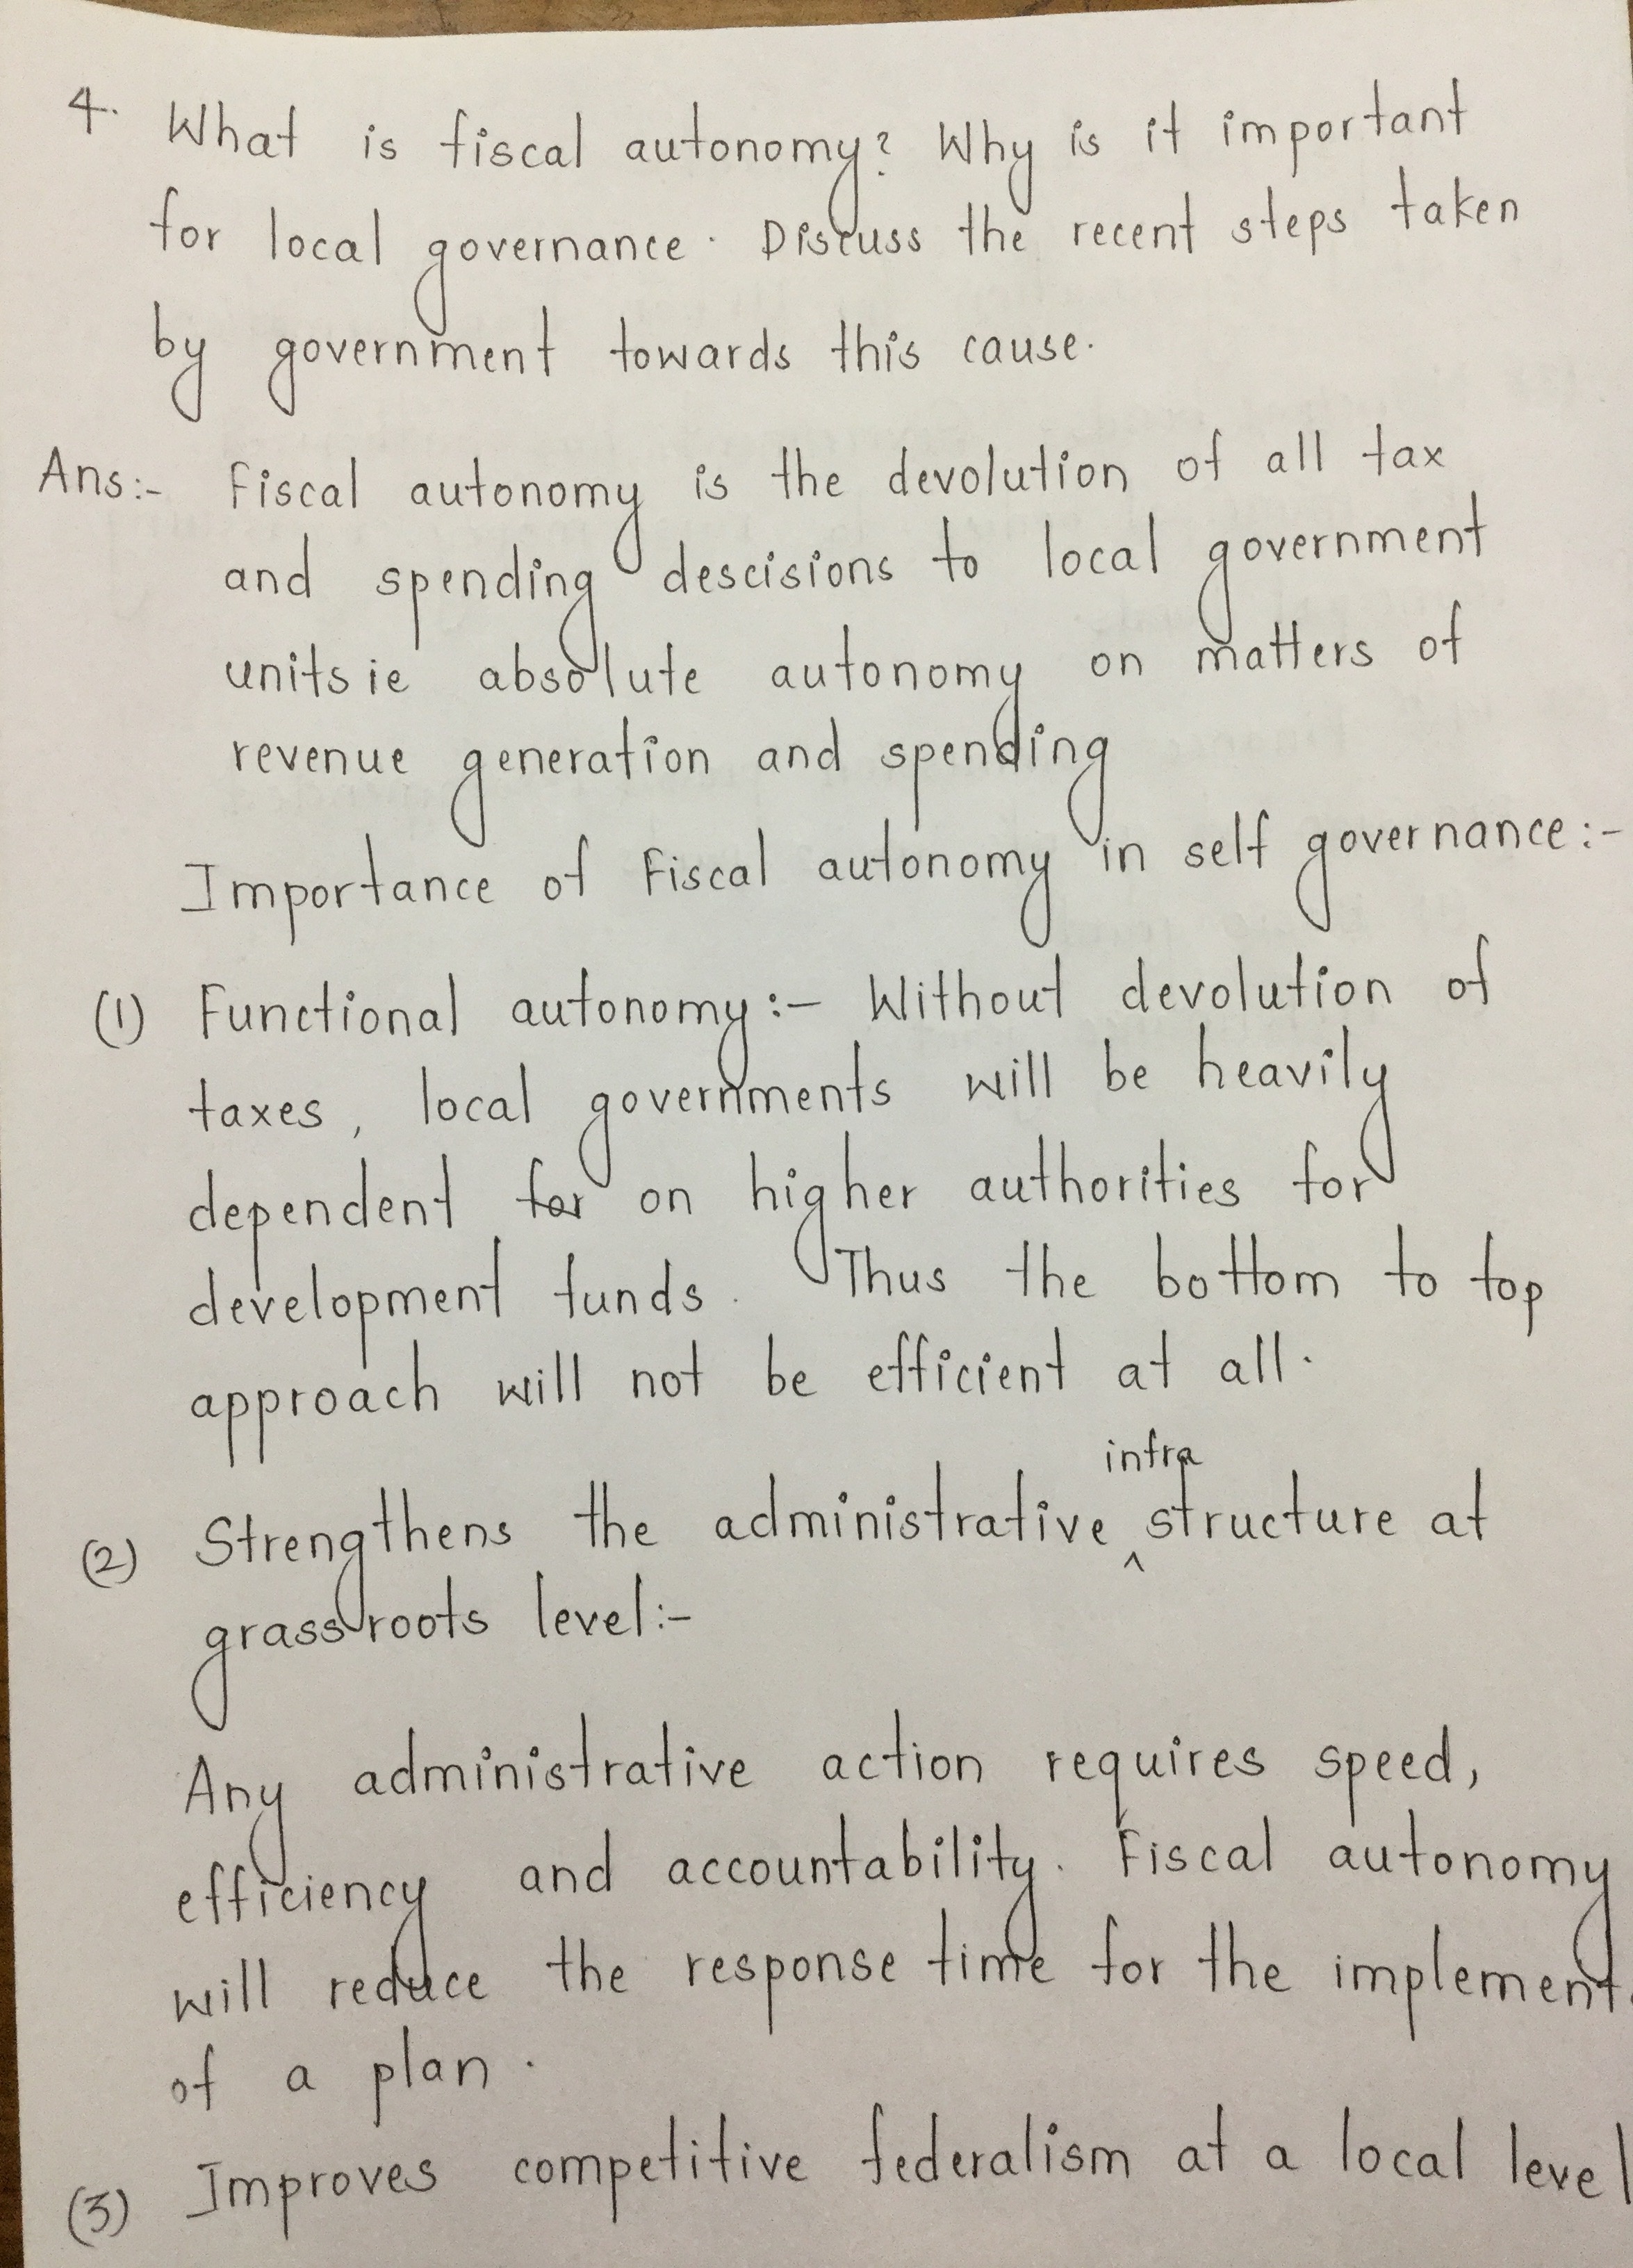 4. What is fiscal autonomy? Why is it important
for local governance. Discuss the recent steps taken
by government towards this cause.
Ans:- Fiscal autonomy is the devolution of all tax
and spending descisions to local government
units ie absolute autonomy on matters of
revenue generation and spending
Importance of Fiscal autonomy in self governance:-
(1) Functional autonomy:- Without devolution of
taxes, local governments will be heavily
dependent for on higher authorities for
development funds. Thus the bottom to top
approach will not be efficient at all.
infra
(2) Strengthens the administrative ^ structure at
grassroots level:-
Any administrative action requires speed,
efficiency and accountability. Fiscal autonomy
will reduce the response time for the implement.
of a plan.
(3) Improves competitive federalism at a local level